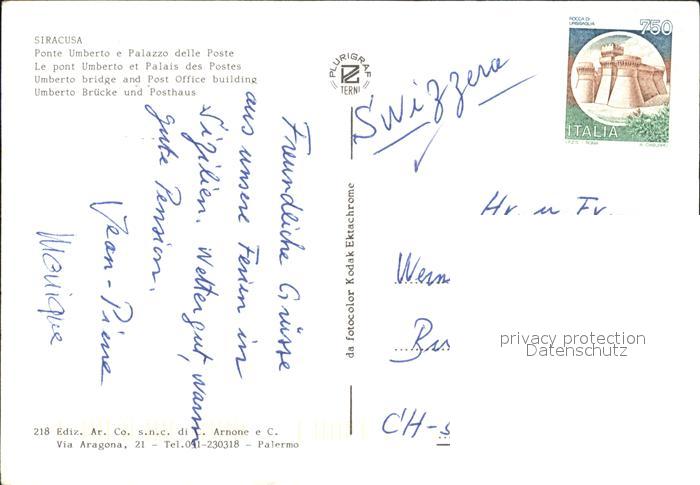 SIRACUSA
Ponte Umberto e Palazzo delle Poste
Le pont Umberto et Palais des Postes
Umberto bridge and Post Office building
Umberto Brücke und Posthaus
PLURIGRAF
TERNI
ROCCA DI
URBISAGLIA
750
ITALIA
I.P.Z.S. - ROMA
Svizzera
Freundliche Grüsse
aus unsere Ferien in
Sizilien. Wetter gut, warm
gute Pension.
Jean-Pierre
Monique
da fotocolor Kodak Ektachrome
Hr. u Fr.
Wern
CH-
privacy protection
Datenschutz
218 Ediz. Ar. Co. s.n.c. di C. Arnone e C.
Via Aragona, 21 - Tel.091-230318 - Palermo